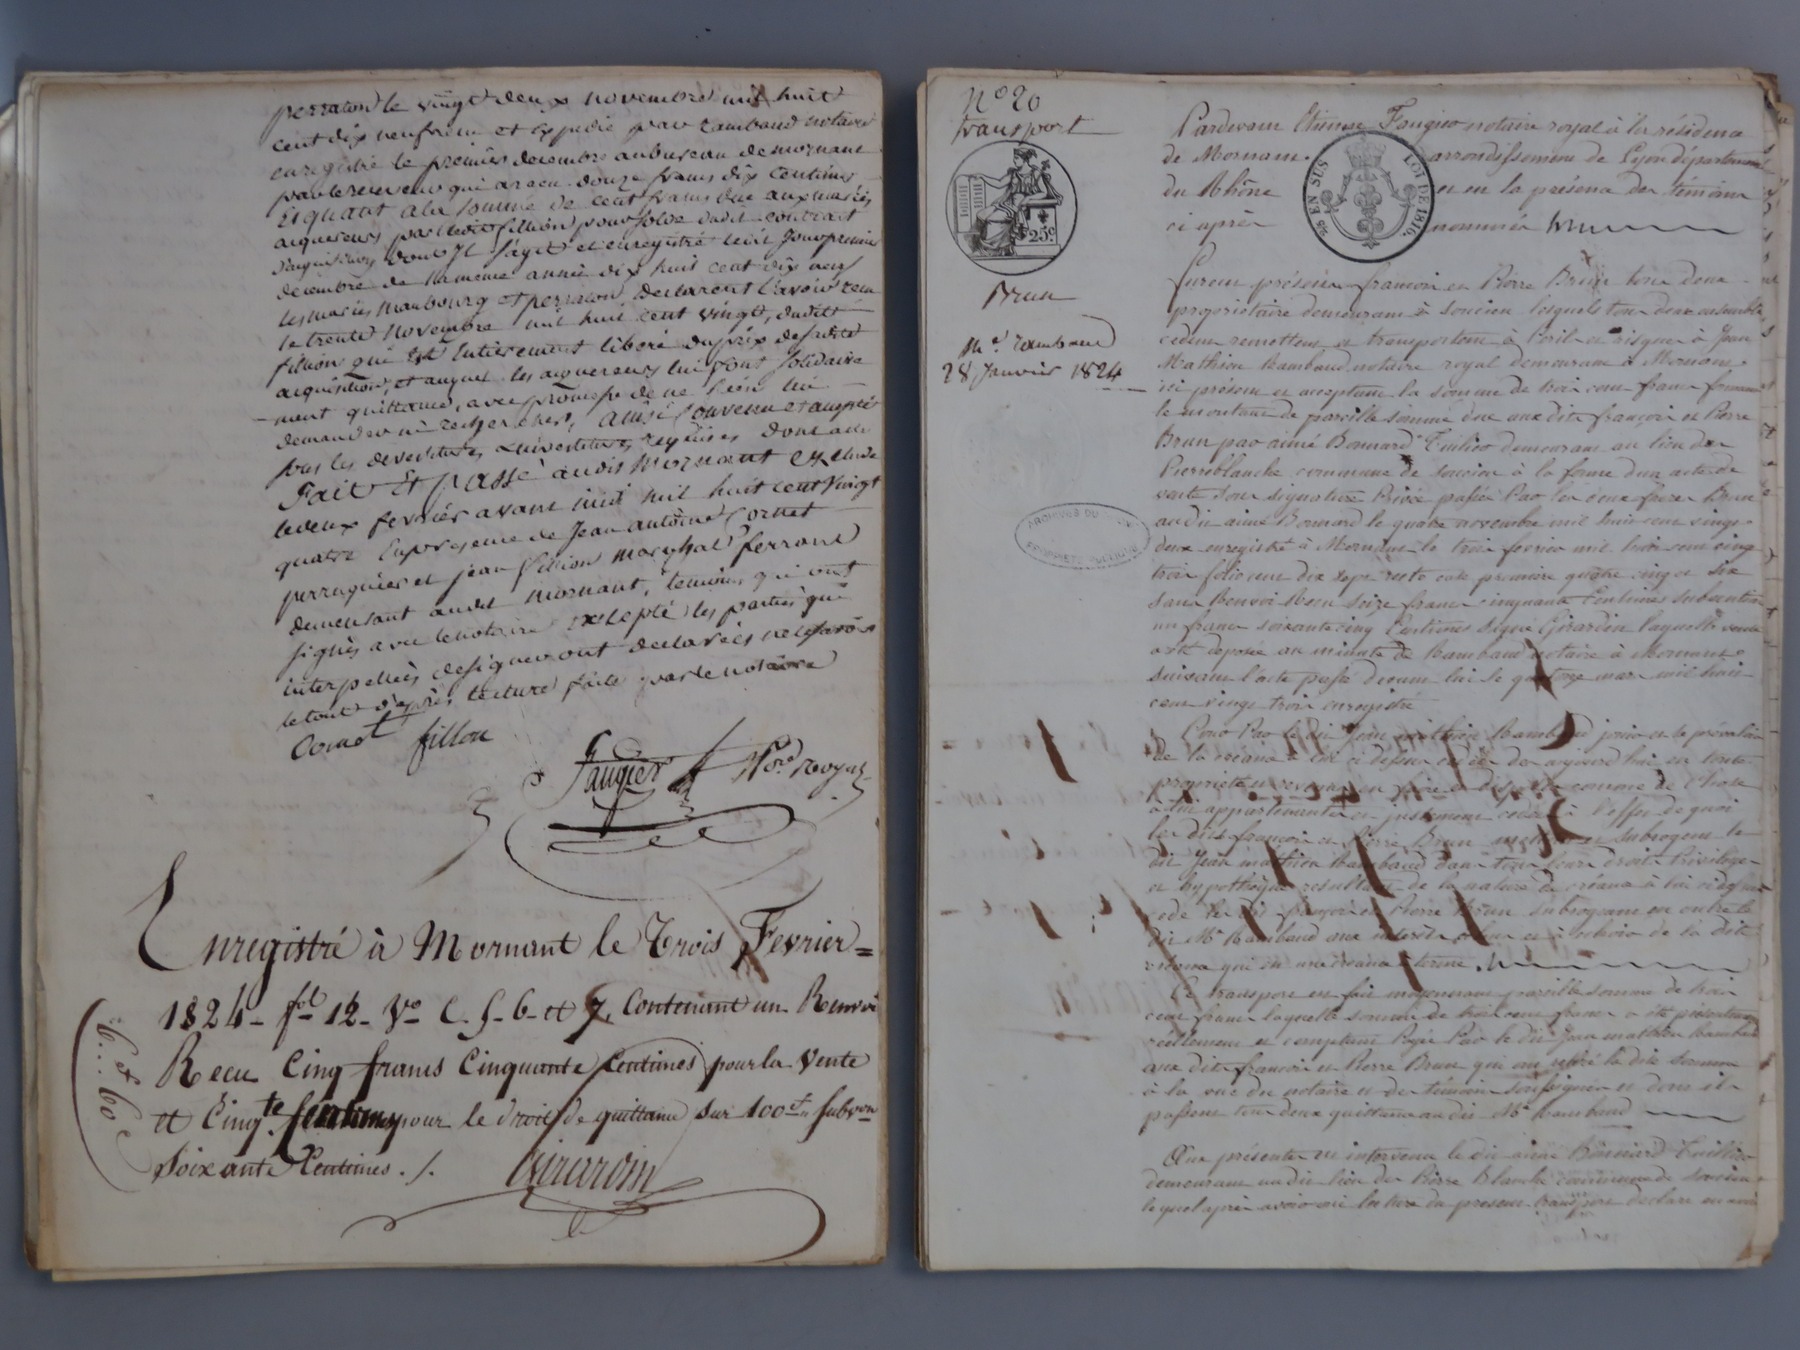 perraton le vingt deux novembre mil huit
cent dix neuf reçu et expédié par rambaud notaire
enregistré le premier décembre au bureau de mornant
par le receveur qui a reçu douze francs dix centimes
Et quant a la somme de cent francs due aux mariés
acquereurs par ledit fillion pour solde dudit contrait
d'acquisition dont Il s'agit et enregistré ledit Jour premier
decembre de la meme année dix huit cent dix neuf
les mariés Maubourg et perraton, declarent l'avoir recu
le trente Novembre mil huit cent vingt, dudit
fillion qui Est Entierement libéré du prix de susdite
acquisition, et auquel les acquereurs lui font solidaire
ment quittance, avec promesse de ne Rien lui
demander ni rechercher, ainsi Convenu et accepté
sous les devestitures Investitures requises dont acte
Fait Et passé audit Mornant Et Etude
le deux fevrier avant midi mil huit cent vingt
quatre En presence de Jean antoine Cornet
perruquier et jean fillion maréchal ferrant
demeurant audit mornant, temoins qui ont
signés avec le notaire Excepté les parties qui
interpellées de signer ont declarées ne savoir
le tout d'après lecture faite par le notaire
Cornet fillon
faugier Nore royal
Enregistré à Mornant le Trois Fevrier
1824 - fol 12 - Vo C. 5. 6 et 7, Contenant un Renvoi
Recu Cinq francs Cinquante Centimes pour la Vente
et Cinqte Centimes pour le droit de quittance sur 100f. Subvon
Soixante Centimes ./.
6f..60c
Girardin
No 20
Transport
25c
Brun
Me rambaud
28 Janvier 1824
5c EN SUS
LOI DE 1816
ARCHIVES DU RHONE
PROPRIETE PUBLIQUE
Pardevant Etienne Faugier notaire royal à la résidence
de Mornant arrondissement de Lyon département
du Rhône et en la présence des témoins
ci après nommés
Furent présents françois et Pierre Brun tous deux
propriétaire demeurant à soucieu lesquels tous deux ensemble
cedent remettent et transportent à péril et risques à Jean
Mathieu Rambaud notaire royal demeurant à Mornant
ici présent et acceptant la somme de trois cent francs formant
le montant de pareille somme due aux dits françois et Pierre
Brun par aimé Bonnard Tuilier demeurant au lieu de
Pierreblanche commune de soucieu à la forme d'un acte de
vente sous signature Privée passée Par les deux freres Brun
audit aimé Bonnard le quatre novembre mil huit cent vingt
deux enregistré à Mornant le trois fevrier mil huit cent vingt
trois folio cent dix sept recto case première quatre cinq et six
sans Renvoi Recu seize francs cinquante Centimes subvention
un franc soixante cinq Centimes signé Girardin laquelle vente
a été déposée au minute de Rambaud notaire à Mornant
suivant l'acte passé devant lui le quatorze mars mil huit
cent vingt trois enregistré
Pour Par le dit Jean mathieu Rambaud jouir et se prévaloir
de la créance à lui ci dessus cédée des aujourd'hui en toute
propriété et revenus en faire et disposer comme de Chose
à lui appartenante et justement cédée à l'effet de quoi
les dits françois et Pierre Brun mettent et subrogent le
dit Jean mathieu Rambaud dans tous leurs droits Privilège
et hypothèque resultant de la nature de créance à lui ci dessus
cédé les dits françois et Pierre Brun subrogeant en outre le
dit Me Rambaud aux intérêts à la dite
créance qui est une créance à terme.
Ce transport est fait moyennant pareille somme de trois
cent francs laquelle somme de trois cent francs a été présentement
réellement et comptant Payée Par le dit Jean mathieu Rambaud
aux dits françois et Pierre Brun qui ont retiré la dite somme
à la vue du notaire et des témoins soussignés et dont ils
passent tous deux quittance au dit Me Rambaud
Aux présentes est intervenu le dit aimé Bonnard Tuilier
demeurant au dit lieu de Pierre Blanche commune de soucieu
lequel après avoir oui lecture du present transport declare en avoir